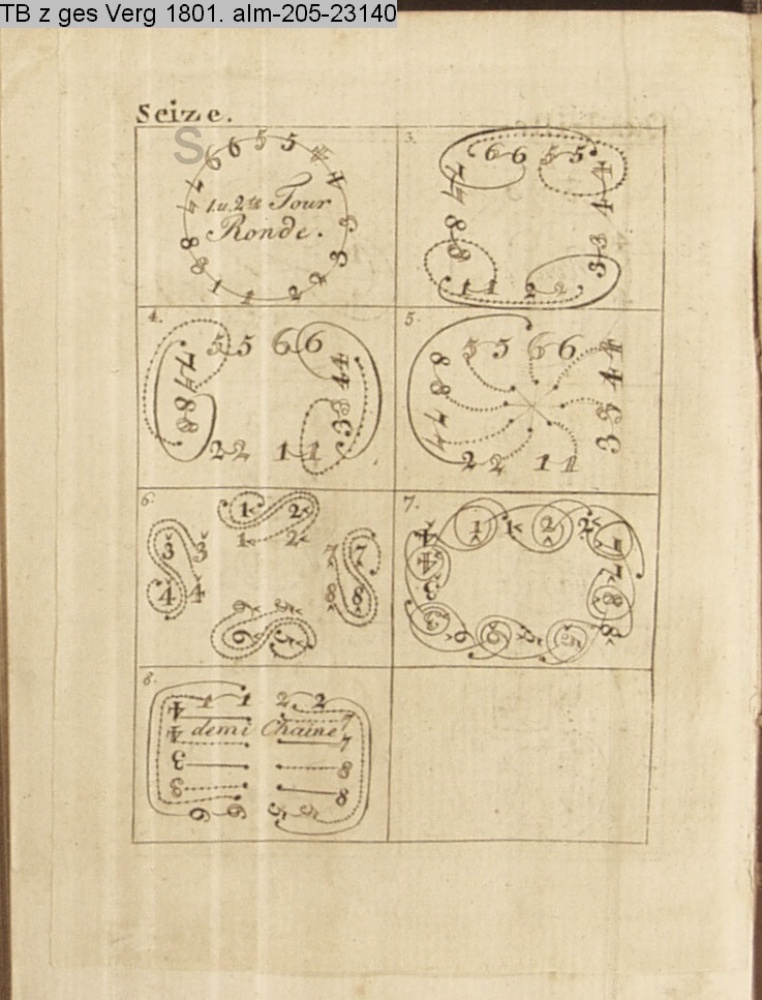 TB z ges Verg 1801. alm-205-23140
Seize.
S
6 6 5 5 4 4
7 7 3 3
1. u. 2te Tour
Ronde.
8 8 1 1 2 2
3.
6 6 5 5
7 7 4 4
8 8 3 3
1 1 2 2
4.
5 5 6 6
7 7 4 4
8 8 3 3
2 2 1 1
5.
8 5 5 6 6 4
8 4
7 3
7 3
2 2 1 1
6.
1 2
1 2
3 3 7 7
4 4 8 8
6 5
6 5
7.
4 1 1 2 2 7
4 7
3 8
3 6 6 5 5 8
8.
1 1 2 2
4 7
4 demi Chaine 7
3 8
3 8
6 6 5 5